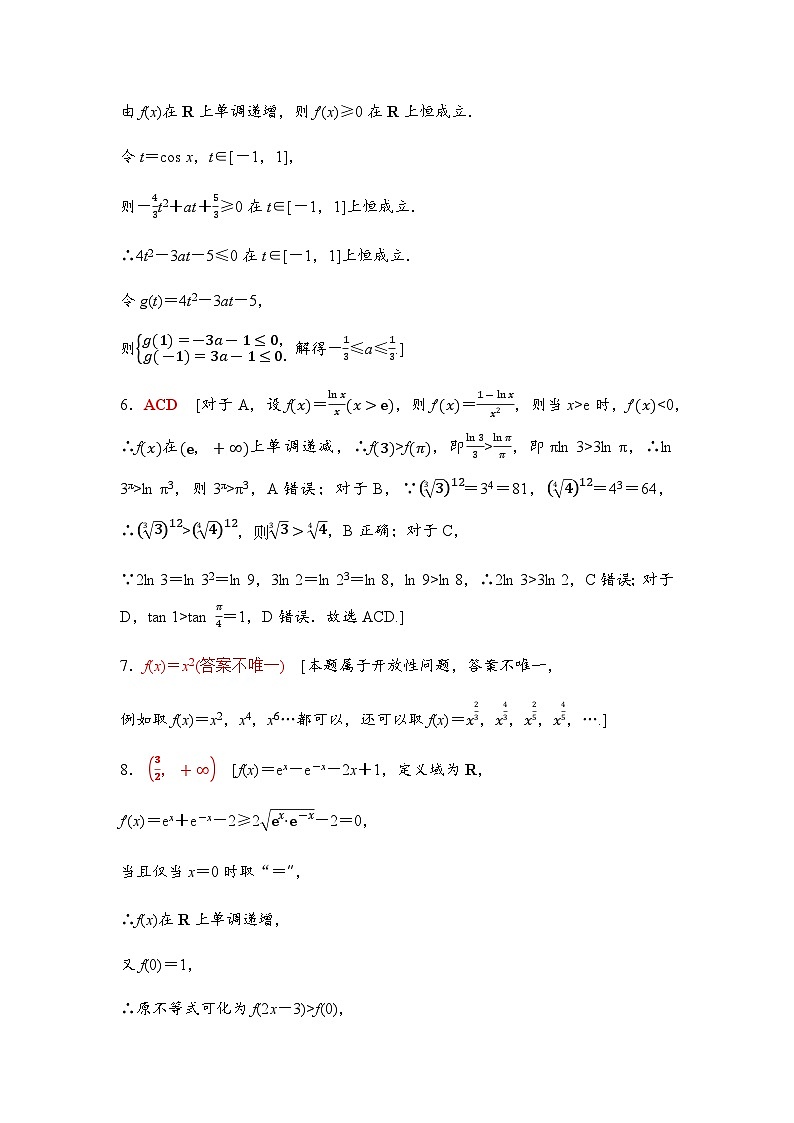 由f(x)在R上单调递增，则f′(x)≥0在R上恒成立．
令t＝cos x，t∈[－1，1]，
则－4/3t²＋at＋5/3≥0在t∈[－1，1]上恒成立．
∴4t²－3at－5≤0在t∈[－1，1]上恒成立．
令g(t)＝4t²－3at－5，
则{g(1)＝－3a－1≤0，g(－1)＝3a－1≤0. 解得－1/3≤a≤1/3.]
6．ACD　[对于A，设f(x)＝ln x/x(x>e)，则f′(x)＝1－ln x/x²，则当x>e时，f′(x)<0，
∴f(x)在(e，＋∞)上单调递减，∴f(3)>f(π)，即ln 3/3>ln π/π，即πln 3>3ln π，∴ln
3^π>ln π³，则3^π>π³，A错误；对于B，∵(∛3)¹²＝3⁴＝81，(∜4)¹²＝4³＝64，
∴(∛3)¹²>(∜4)¹²，则∛3>∜4，B正确；对于C，
∵2ln 3＝ln 3²＝ln 9，3ln 2＝ln 2³＝ln 8，ln 9>ln 8，∴2ln 3>3ln 2，C错误；对于
D，tan 1>tan π/4＝1，D错误．故选ACD.]
7．f(x)＝x²(答案不唯一)　[本题属于开放性问题，答案不唯一，
例如取f(x)＝x²，x⁴，x⁶…都可以，还可以取f(x)＝x^(2/3)，x^(4/3)，x^(2/5)，x^(4/5)，….]
8．(3/2，＋∞)　[f(x)＝e^x－e^(－x)－2x＋1，定义域为R，
f′(x)＝e^x＋e^(－x)－2≥2√(e^x·e^(－x))－2＝0，
当且仅当x＝0时取“＝”，
∴f(x)在R上单调递增，
又f(0)＝1，
∴原不等式可化为f(2x－3)>f(0)，